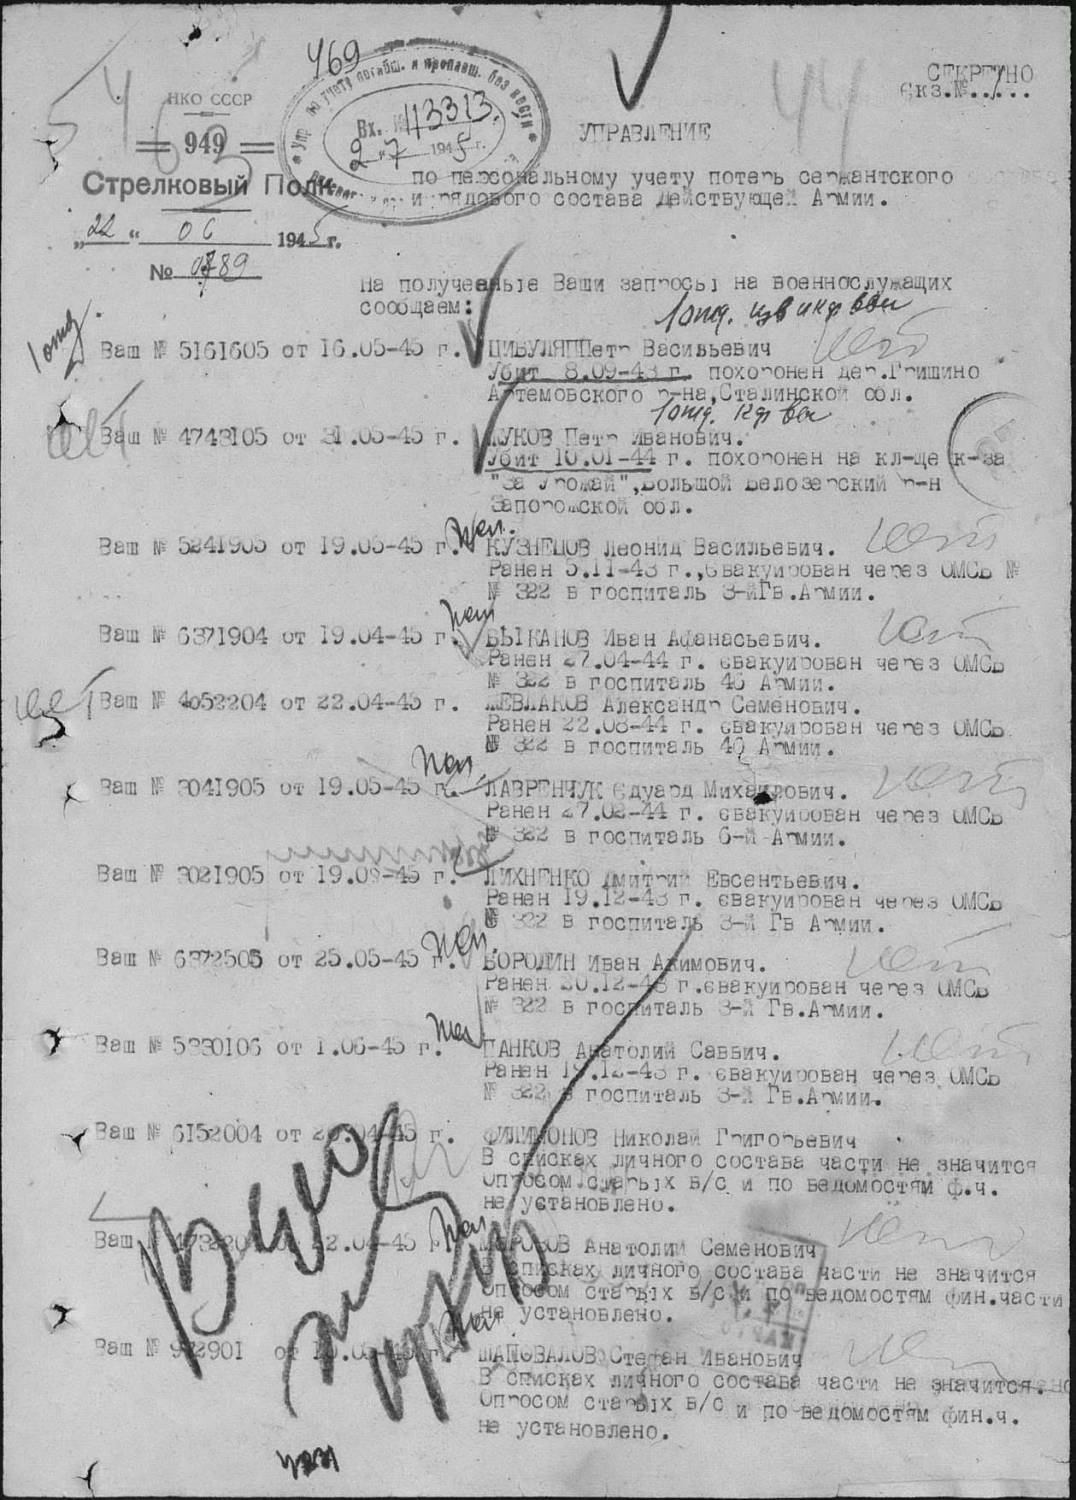 469
СЕКРЕТНО
Экз.№.1...
НКО СССР
949
Стрелковый Полк
„22“ 06 1945 г.
№ 0789
Упр. по учету погибш. и пропавш. без вести
Вх. № 113313
2 „7 1945 г.
УПРАВЛЕНИЕ
по персональному учету потерь сержантского
и рядового состава Действующей Армии.
На полученные Ваши запросы на военнослужащих
сообщаем:
1 отд.
Ваш № 5161605 от 16.05-45 г. ЦИБУЛЯ Петр Васильевич
Убит 8.09-43 г. похоронен дер.Гришино
Артемовского р-на,Сталинской обл.
Ваш № 4743105 от 31.05-45 г. ЖУКОВ Петр Иванович.
Убит 10.01-44 г. похоронен на кл-ще к-за
"За Урожай",Большой Белозерский р-н
Запорожской обл.
Ваш № 5241905 от 19.05-45 г. КУЗНЕЦОВ Леонид Васильевич.
Ранен 5.11-43 г.,эвакуирован через ОМСБ №
№ 322 в госпиталь 3-йГв.Армии.
Ваш № 6371904 от 19.04-45 г. БЫКАНОВ Иван Афанасьевич.
Ранен 27.04-44 г. эвакуирован через ОМСБ
№ 322 в госпиталь 46 Армии.
Ваш № 4052204 от 22.04-45 г. ШЕВЛАКОВ Александр Семенович.
Ранен 22.08-44 г. эвакуирован через ОМСБ
№ 322 в госпиталь 40 Армии.
Ваш № 3041905 от 19.05-45 г. ЛАВРЕНЧУК Эдуард Михайлович.
Ранен 27.02-44 г. эвакуирован через ОМСБ
№ 322 в госпиталь 6-й Армии.
Ваш № 3021905 от 19.09-45 г. ЛИХНЕНКО Дмитрий Евсентьевич.
Ранен 19.12-43 г. эвакуирован через ОМСБ
№ 322 в госпиталь 3-й Гв Армии.
Ваш № 6372505 от 25.05-45 г. БОРОДИН Иван Акимович.
Ранен 20.12-43 г.эвакуирован через ОМСБ
№ 322 в госпиталь 3-й Гв.Армии.
Ваш № 5330106 от 1.06-45 г. ПАНКОВ Анатолий Саввич.
Ранен 19.12-43 г. эвакуирован через ОМСБ
№ 322 в госпиталь 3-й Гв.Армии.
Ваш № 6152004 от 20.04-45 г. ФИЛИМОНОВ Николай Григорьевич
В списках личного состава части не значится
Опросом старых б/с и по ведомостям ф.ч.
не установлено.
Ваш № от МОРОЗОВ Анатолий Семенович
В списках личного состава части не значится
Опросом старых б/с и по ведомостям фин.части
не установлено.
Ваш № от ШАПОВАЛОВ Степан Иванович
В списках личного состава части не значится.
Опросом старых б/с и по ведомостям фин.ч.
не установлено.